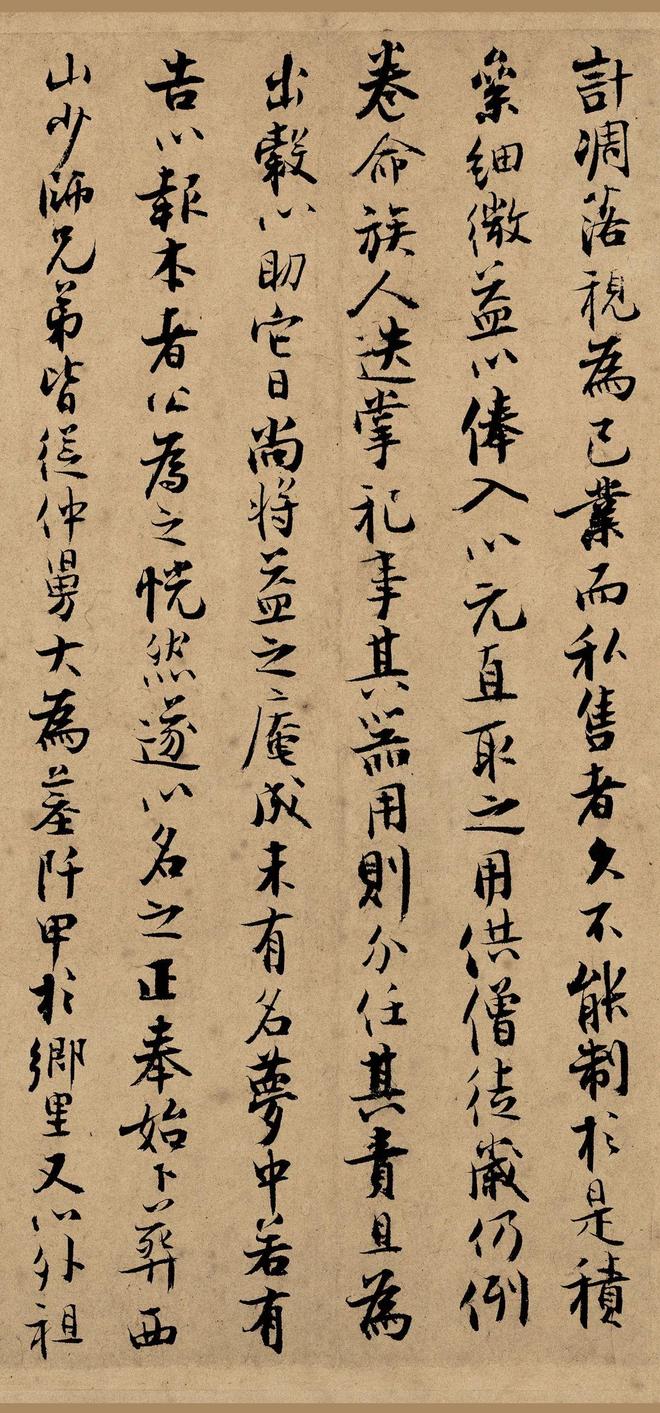 計凋落視為己業而私售者久不能制於是積
絫細微益以俸入以元直取之用供僧徒歲仍例
卷命族人迭掌祀事其器用則分任其責且為
出穀以助它日尚將益之庵成未有名夢中若有
告以報本者公為之恍然遂以名之正奉始卜葬西
山少師兄弟皆從仲舅大為墓阡甲於鄉里又以外祖